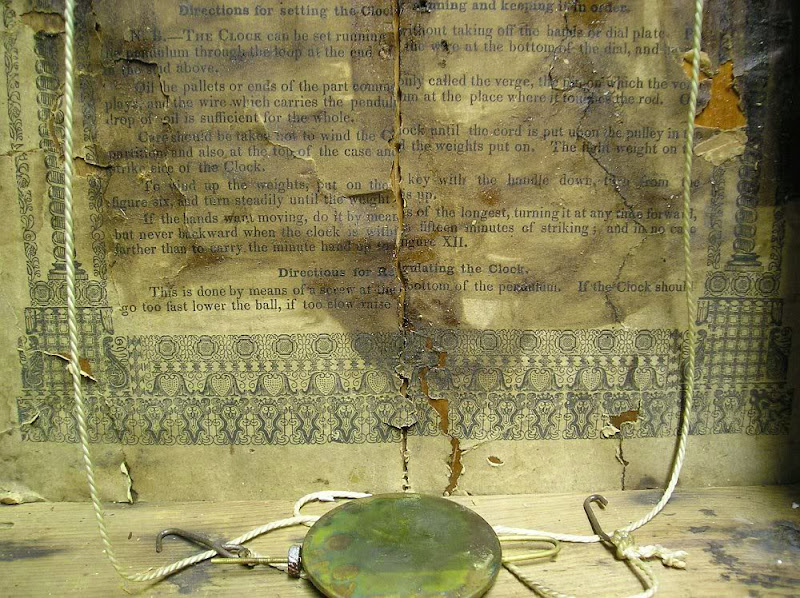 Directions for setting the Clock running and keeping it in order.
N. B.—THE CLOCK can be set running without taking off the hands or dial plate.
pendulum through the loop at the end of the wire at the bottom of the dial, and
the stud above.
Oil the pallets or ends of the part commonly called the verge, the pin on which the
plays, and the wire which carries the pendulum at the place where it touches the rod.
drop of oil is sufficient for the whole.
Care should be taken not to wind the Clock until the cord is put upon the pulley in
partition and also at the top of the case and the weights put on. The light weight on
strike side of the Clock.
To wind up the weights, put on the key with the handle down, turn from the
figure six, and tern steadily until the weight is up.
If the hands want moving, do it by means of the longest, turning it at any time forward,
but never backward when the clock is within fifteen minutes of striking; and in no case
farther than to carry the minute hand up to figure XII.
Directions for Regulating the Clock.
This is done by means of a screw at the bottom of the pendulum. If the Clock should
go too fast lower the ball, if too slow raise